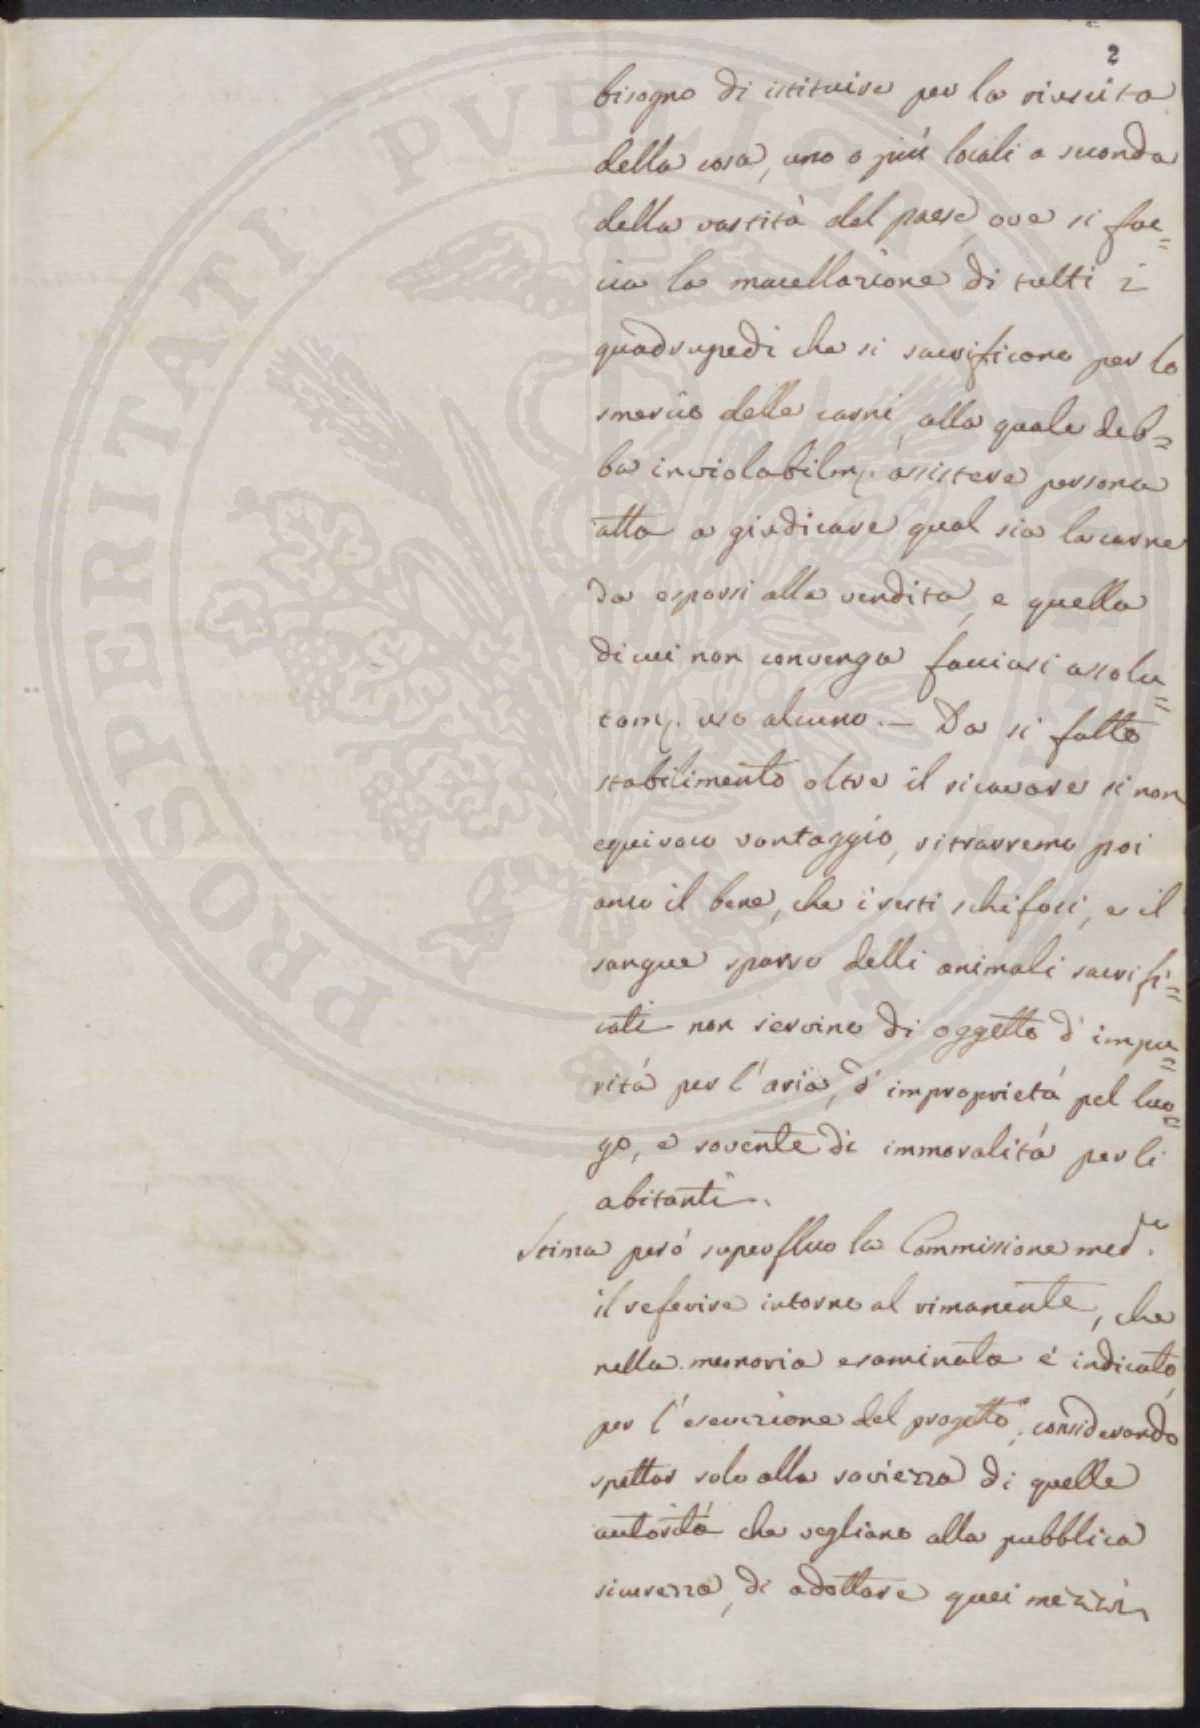 2
bisogno di istituire per la riuscita
della cosa, uno o più locali a seconda
della vastità del paese, ove si fac=
cia la macellazione di tutti i
quadrupedi che si sacrificano per lo
smercio delle carni, alla quale deb=
ba inviolabilm. assistere persona
atta a giudicare qual sia la carne
da esporsi alla vendita, e quella
di cui non convenga facciasi assolu=
tam. uso alcuno. — Da si fatto
stabilimento oltre il ricavare si non
equivoco vantaggio, ritrarremo poi
anco il bene, che i resti schifosi, e il
sangue sparso delli animali sacrifi=
cati non servino di oggetto d'impu=
rità per l'aria, d'improprietà pel luo=
go, e sovente di immoralità per li
abitanti.
Stima però superfluo la Commissione med.
il referire intorno al rimanente, che
nella memoria esaminata è indicato,
per l'esecuzione del progetto, considerando
spettar solo alla saviezza di quelle
autorità che vegliano alla pubblica
sicurezza, di adottare quei mezzi
PROSPERITATI PUBLICAE